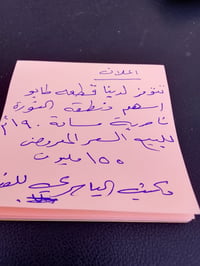 اعلان
تتوفر لدينا قطعه طابو
اسهم منطقه الثورة
ناصية مساحة ٩٠ م
للبيع السعر المعروض
١٥٥ مليون
مكتب الياسري للعقار